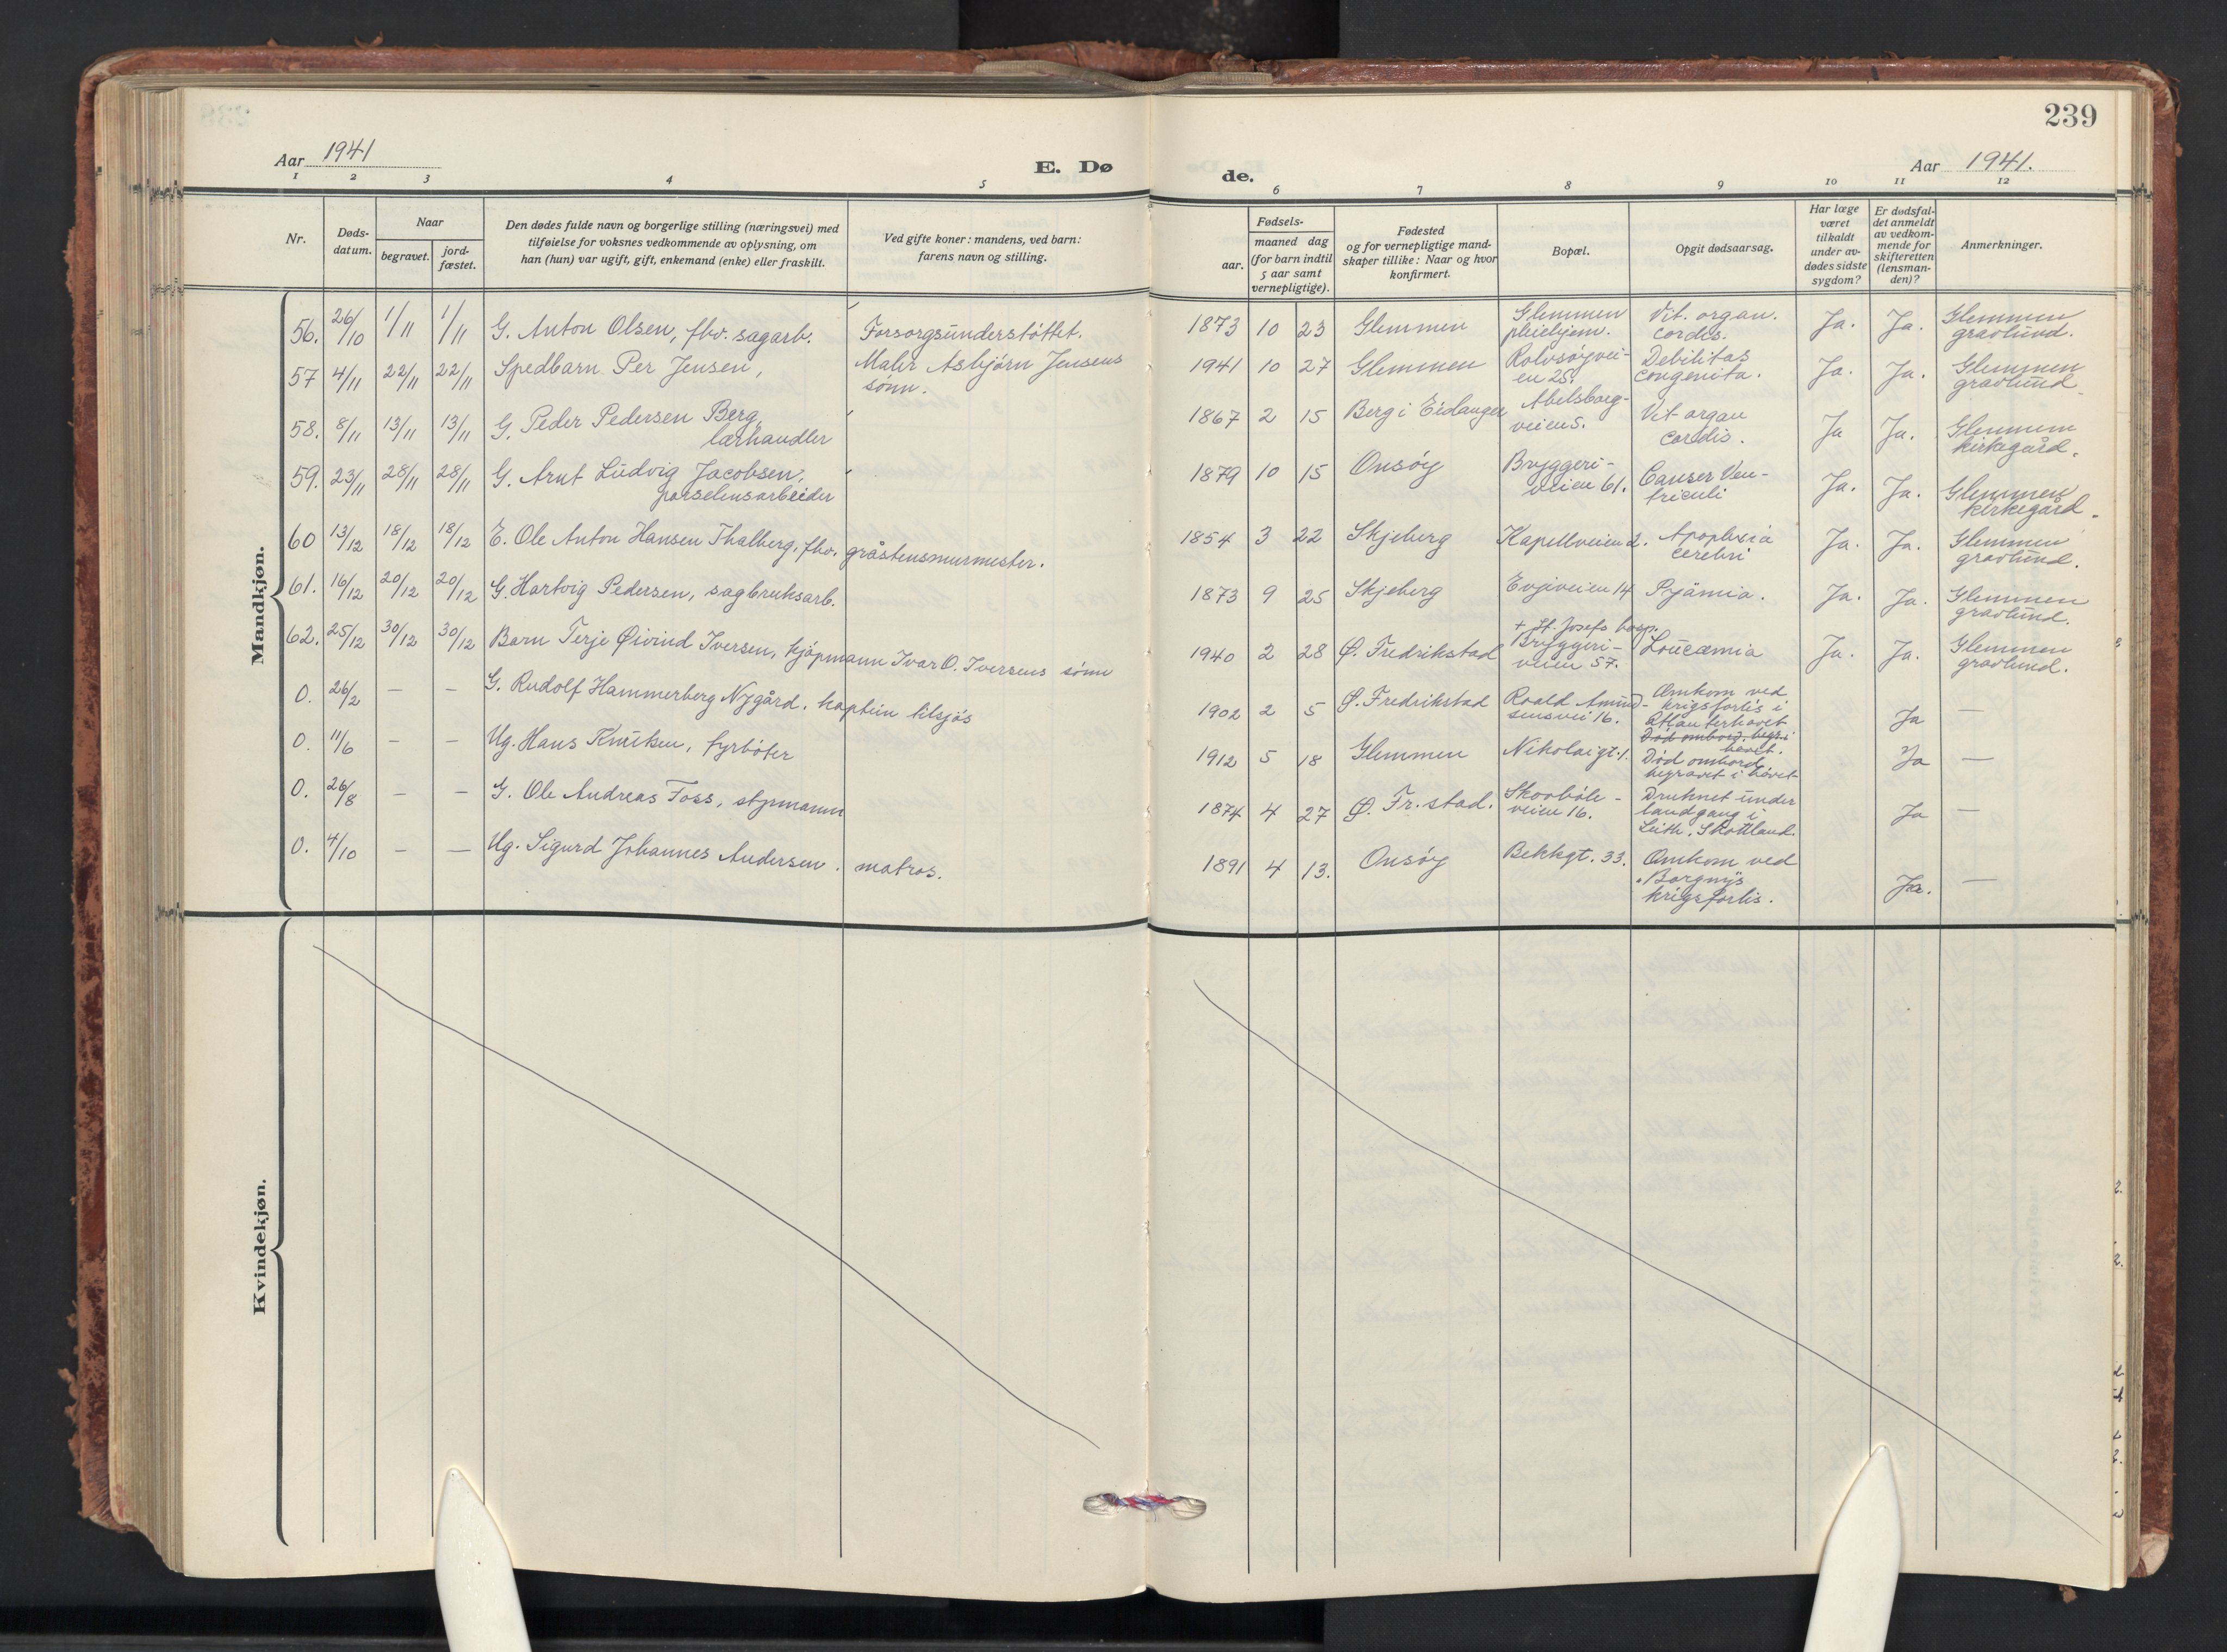 239
Aar 1941
E. Dø
de.
Aar 1941.
1 2 3 4 5 6 7 8 9 10 11 12
Nr.
Døds-
datum.
Naar
begravet.
jord-
fæstet.
Den dødes fulde navn og borgerlige stilling (næringsvei) med
tilføielse for voksnes vedkommende av oplysning, om
han (hun) var ugift, gift, enkemand (enke) eller fraskilt.
Ved gifte koner: mandens, ved barn:
farens navn og stilling.
Fødsels-
aar.
maaned dag
(for barn indtil
5 aar samt
vernepligtige).
Fødested
og for vernepligtige mand-
skaper tillike: Naar og hvor
konfirmert.
Bopæl.
Opgit dødsaarsag.
Har læge
været
tilkaldt
under av-
dødes sidste
sygdom?
Er dødsfal-
det anmeldt
av vedkom-
mende for
skifteretten
(lensman-
den)?
Anmerkninger.
Mandkjøn.
56. 26/10 1/11 1/11 G. Anton Olsen, fhv. sagarb. Forsorgsunderstøttet. 1873 10 23 Glemmen Glemmen
pleiehjem. Vit. organ.
cordis. Ja. Ja. Glemmen
gravlund.
57 4/11 22/11 22/11 Spedbarn Per Jensen, Maler Asbjørn Jensens
sønn. 1941 10 27 Glemmen Rolvsøyvei-
en 25. Debilitas
congenita. Ja. Ja. Glemmen
gravlund.
58. 8/11 13/11 13/11 G. Peder Pedersen Berg,
lærhandler 1867 2 15 Berg i Eidanger Abelsborg-
veien 5. Vit organ
cordis. Ja Ja. Glemmen
kirkegård.
59. 23/11 28/11 28/11 G. Arnt Ludvig Jacobsen,
porselensarbeider 1879 10 15 Onsøy Bryggeri-
veien 61. Canser Ven-
triculi Ja. Ja. Glemmen
kirkegård.
60 13/12 18/12 18/12 E. Ole Anton Hansen Thalberg, fhv. gråstensmurmester. 1854 3 22 Skjeberg Kapellveien 2. Apoplexia
cerebri Ja. Ja. Glemmen
gravlund.
61. 16/12 20/12 20/12 G. Hartvig Pedersen, sagbruksarb. 1873 9 25 Skjeberg Evjeveien 14 Pyämia. Ja. Ja. Glemmen
gravlund.
62. 25/12 30/12 30/12 Barn Terje Øivind Iversen, kjøpmann Ivar O. Iversens sønn 1940 2 28 Ø. Fredrikstad + St. Josefs hosp.
Bryggeri-
veien 57. Loucæmia Ja. Ja. Glemmen
gravlund.
0. 26/2 — — G. Rudolf Hammerberg Nygård, kaptein tilsjøs 1902 2 5 Ø. Fredrikstad Roald Amund-
sensvei 16. Omkom ved
krigsforlis i
Atlanterhavet Ja —
0. 11/6 — — Ug. Hans Knutsen, fyrbøter 1912 5 18 Glemmen Nikolaigt. 1. Død ombord, begr. i
havet.
Død ombord,
begravet i havet Ja —
0. 26/8 — — G. Ole Andreas Foss, styrmann 1874 4 27 Ø. Fr.stad. veien 16. Druknet under
landgang i
Leith, Skottland. Ja —
0. 4/10 — — Ug. Sigurd Johannes Andersen, matros. 1891 4 13. Onsøy Bekkgt. 33. Omkom ved
"Borgnys
krigsforlis. Ja. —
Kvindekjøn.